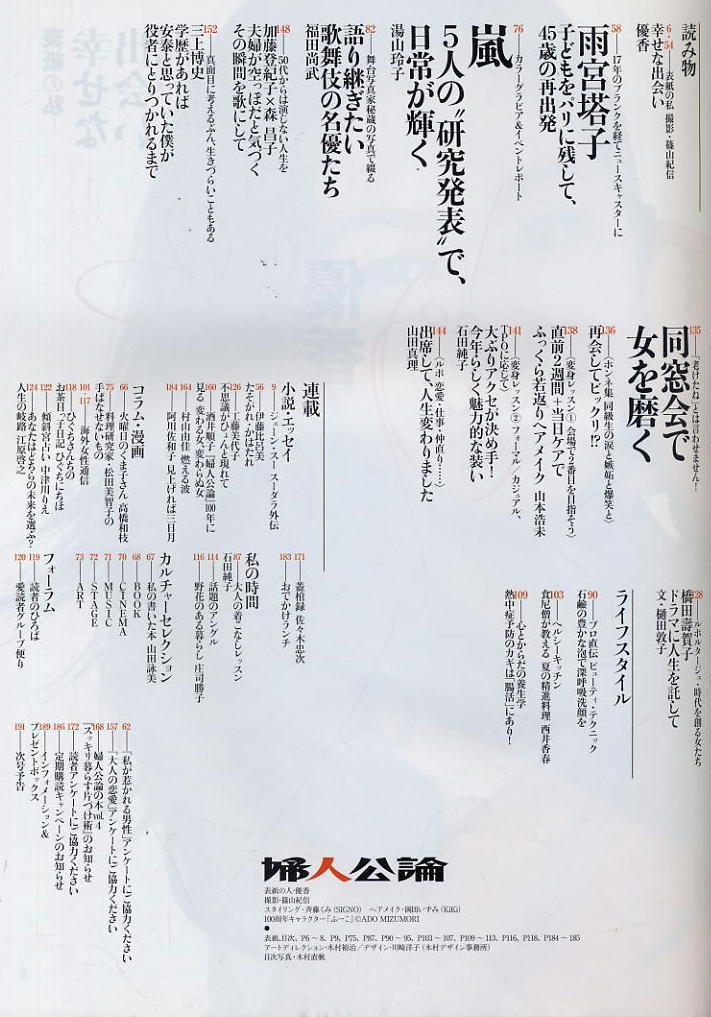 読み物
6・54 表紙の私 撮影・篠山紀信
幸せな出会い
優香
58 17年のブランクを経てニュースキャスターに
雨宮塔子
子どもをパリに残して、
45歳の再出発
76 カラーグラビア&イベントレポート
嵐
5人の“研究発表”で、
日常が輝く
湯山玲子
82 舞台写真家秘蔵の写真で綴る
語り継ぎたい
歌舞伎の名優たち
福田尚武
148 50代からは演じない人生を
加藤登紀子×森 昌子
夫婦が空っぽだと気づく
その瞬間を歌にして
152 真面目に考えるぶん、生きづらいこともある
三上博史
学歴があれば
安泰と思っていた僕が
役者にとりつかれるまで
135 「老けたね」とは言わせません!
同窓会で
女を磨く
136 〈ホンネ集 同級生の涙と嫉妬と爆笑と〉
再会してビックリ!?
138 〈変身レッスン① 会場で2番目を目指そう〉
直前2週間+当日ケアで
ふっくら若返りヘアメイク 山本浩未
141 〈変身レッスン② フォーマル/カジュアル、
TPOに応じて〉
大ぶりアクセが決め手!
今年らしく魅力的な装い
石田純子
144 〈ルポ 恋愛・仕事・仲直り…〉
出席して、人生変わりました
山田真理
連載
小説・エッセイ
9 ジェーン・スー スーダラ外伝
56 伊藤比呂美
たそがれ・かはたれ
126 工藤美代子
不思議がひょんと現れて
160 酒井順子 『婦人公論』100年に
見る 変わる女、変わらぬ女
164 村山由佳 燃える波
184 阿川佐和子 見上げれば三日月
コラム・漫画
66 火曜日のくま子さん 高橋和枝
75 料理研究家・松田美智子の
手ばなせないもの
101・117 海外女性通信
118 ひぐちさんちの
お茶目っ子日記 ひぐちにちほ
122 傾斜宮占い 中津川りえ
124 あなたはどちらの未来を選ぶ?
人生の岐路 江原啓之
171 蓋棺録 佐々木忠次
183 おでかけランチ
私の時間
87 大人の着こなしレッスン
石田純子
114 話題のアングル
116 野花のある暮らし 庄司勝子
カルチャーセレクション
67 私の書いた本 山田詠美
68 BOOK
70 CINEMA
71 MUSIC
72 STAGE
73 ART
フォーラム
119 読者のひろば
120 愛読者グループ便り
128 ルポルタージュ・時代を創る女たち
橋田壽賀子
ドラマに人生を託して
文・樋田敦子
ライフスタイル
90 プロ直伝 ビューティ・テクニック
石鹸の豊かな泡で深呼吸洗顔を
103 ヘルシーキッチン
食尼僧が教える 夏の精進料理 西井香春
109 心とからだの養生学
熱中症予防のカギは「腸活」にあり!
62 「私が惹かれる男性」アンケートにご協力ください
157 「大人の恋愛」アンケートにご協力ください
168 婦人公論の本vol.4
『スッキリ暮らす片づけ術』のお知らせ
172 読者アンケートにご協力ください
186 定期購読キャンペーンのお知らせ
189 インフォメーション&
プレゼントボックス
191 次号予告
婦人公論
表紙の人・優香
撮影・篠山紀信
スタイリング・斉藤くみ(SIGNO) ヘアメイク・岡田いずみ(KiKi)
100周年キャラクター「ふーこ」©ADO MIZUMORI
●
表紙、目次、P6~8、P9、P75、P87、P90~95、P103~107、P109~113、P116、P118、P184~185
アートディレクション・木村裕治/デザイン・川崎洋子(木村デザイン事務所)
目次写真・木村直軌